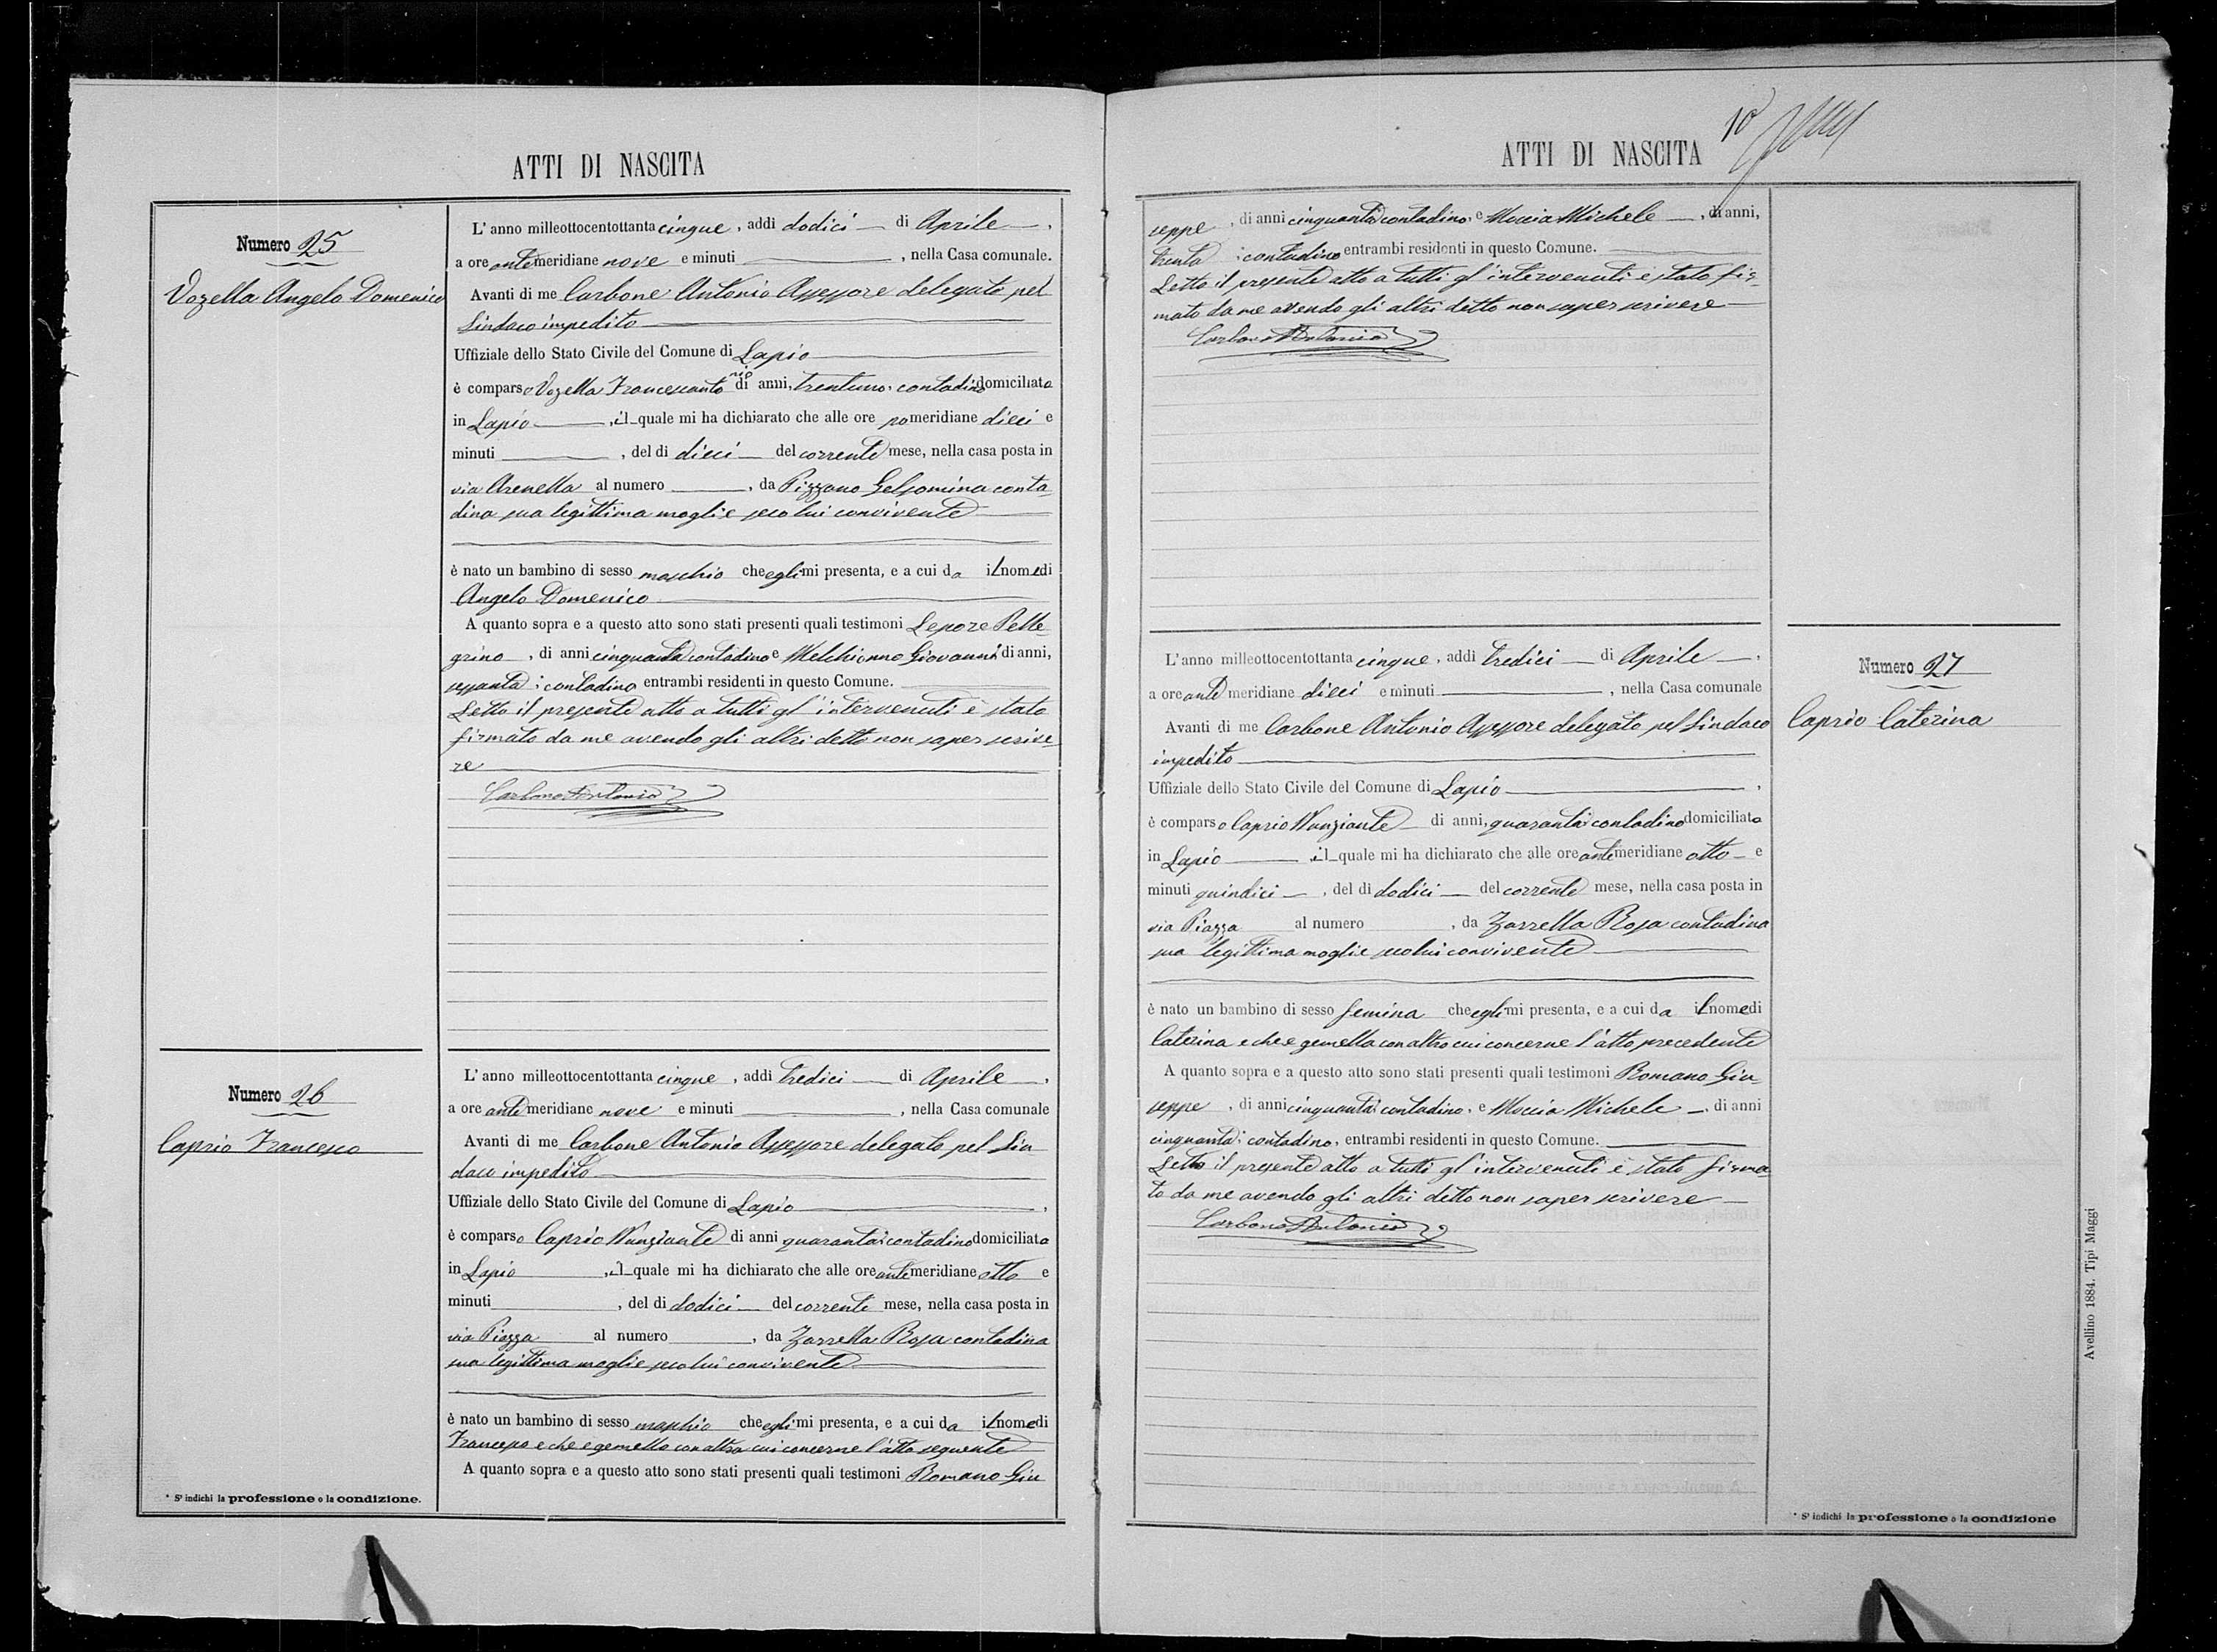 ATTI DI NASCITA
Numero 25
Vozella Angelo Domenico
L'anno milleottocentottanta cinque, addì dodici di Aprile,
a ore antimeridiane nove e minuti, nella Casa comunale.
Avanti di me Carbone Antonio Assessore delegato pel
Sindaco impedito
Uffiziale dello Stato Civile del Comune di Lapio
è comparso Vozella Francescantonio di anni, trentuno, contadino domiciliato
in Lapio, il quale mi ha dichiarato che alle ore pomeridiane dieci e
minuti, del dì dieci del corrente mese, nella casa posta in
via Arenella al numero, da Pizzano Gelsomina conta
dina sua legittima moglie seco lui convivente
è nato un bambino di sesso maschio che egli mi presenta, e a cui da il nome di
Angelo Domenico
A quanto sopra e a questo atto sono stati presenti quali testimoni Lepore Pelle
grino, di anni cinquanta contadino e Melchionno Giovanni di anni,
sessanta; contadino entrambi residenti in questo Comune.
Letto il presente atto a tutti gl'intervenuti è stato
firmato da me avendo gli altri detto non saper scrive
re
Carbone Antonio
Numero 26
Caprio Francesco
L'anno milleottocentottanta cinque, addì tredici di Aprile,
a ore antimeridiane nove e minuti, nella Casa comunale
Avanti di me Carbone Antonio Assessore delegato pel Sin
daco impedito
Uffiziale dello Stato Civile del Comune di Lapio,
è comparso Caprio Nunziante di anni quaranta; contadino domiciliato
in Lapio, il quale mi ha dichiarato che alle ore antimeridiane otto e
minuti, del dì dodici del corrente mese, nella casa posta in
via Piazza al numero, da Zarrella Rosa contadina
sua legittima moglie seco lui convivente
è nato un bambino di sesso maschio che egli mi presenta, e a cui da il nome di
Francesco e che è gemello con altra cui concerne l'atto seguente
A quanto sopra e a questo atto sono stati presenti quali testimoni Romano Giu
* S' indichi la professione o la condizione.
10
ATTI DI NASCITA
seppe, di anni cinquanta contadino, e Moccia Michele, di anni,
trenta; contadino entrambi residenti in questo Comune.
Letto il presente atto a tutti gl'intervenuti è stato fir
mato da me avendo gli altri detto non saper scrivere
Carbone Antonio
L'anno milleottocentottanta cinque, addì tredici di Aprile,
a ore antimeridiane dieci e minuti, nella Casa comunale
Avanti di me Carbone Antonio Assessore delegato pel Sindaco
impedito
Uffiziale dello Stato Civile del Comune di Lapio,
è comparso Caprio Nunziante di anni, quaranta; contadino domiciliato
in Lapio, il quale mi ha dichiarato che alle ore antimeridiane otto e
minuti quindici, del dì dodici del corrente mese, nella casa posta in
via Piazza al numero, da Zarrella Rosa contadina
sua legittima moglie seco lui convivente
è nato un bambino di sesso femina che egli mi presenta, e a cui da il nome di
Caterina e che è gemella con altro cui concerne l'atto precedente
A quanto sopra e a questo atto sono stati presenti quali testimoni Romano Giu
seppe, di anni cinquanta; contadino, e Moccia Michele, di anni
cinquanta; contadino, entrambi residenti in questo Comune.
Letto il presente atto a tutti gl'intervenuti è stato firma
to da me avendo gli altri detto non saper scrivere
Carbone Antonio
Numero 27
Caprio Caterina
* S' indichi la professione o la condizione
Avellino 1884. Tipi Maggi